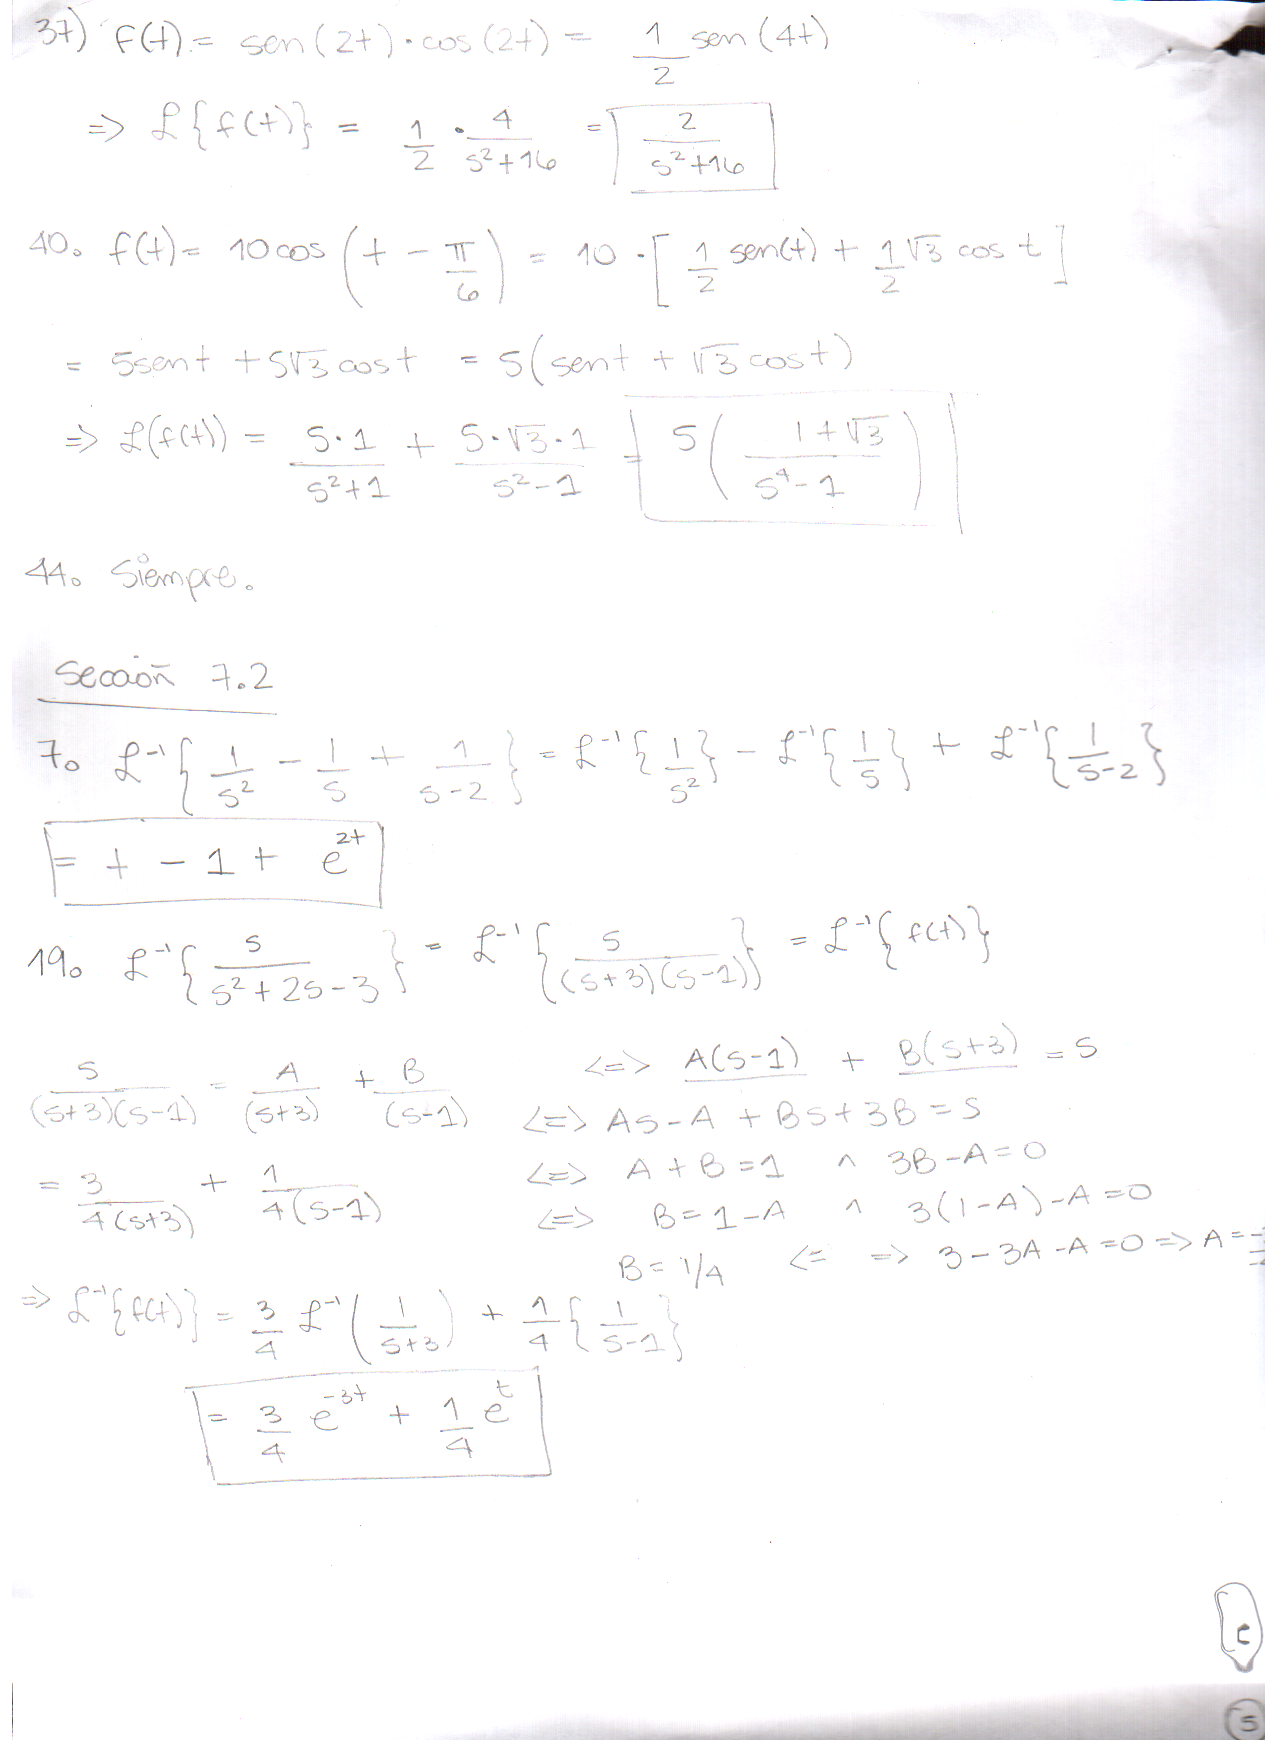 37) f(t) = sen(2t)·cos(2t) = 1/2 sen(4t)
=> ℒ{f(t)} = 1/2 · 4/(s²+16) = 2/(s²+16)
40. f(t) = 10cos(t - π/6) = 10·[1/2 sen(t) + 1/2 √3 cos t]
= 5sent + 5√3 cost = 5(sent + √3 cost)
=> ℒ(f(t)) = 5·1/(s²+1) + 5·√3·1/(s²-1) = 5((1+√3)/(s⁴-1))
44. Siempre.
Sección 7.2
7. ℒ⁻¹{1/s² - 1/s + 1/(s-2)} = ℒ⁻¹{1/s²} - ℒ⁻¹{1/s} + ℒ⁻¹{1/(s-2)}
= t - 1 + e^2t
19. ℒ⁻¹{s/(s²+2s-3)} = ℒ⁻¹{s/((s+3)(s-1))} = ℒ⁻¹{f(t)}
s/((s+3)(s-1)) = A/(s+3) + B/(s-1) <=> A(s-1) + B(s+3) = s
<=> As-A + Bs+3B = s
= 3/(4(s+3)) + 1/(4(s-1)) <=> A+B=1 ∧ 3B-A=0
<=> B=1-A ∧ 3(1-A)-A=0
B=1/4 <= => 3-3A-A=0 => A=
=> ℒ⁻¹{f(t)} = 3/4 ℒ⁻¹(1/(s+3)) + 1/4{1/(s-1)}
= 3/4 e^-3t + 1/4 e^t
C
5